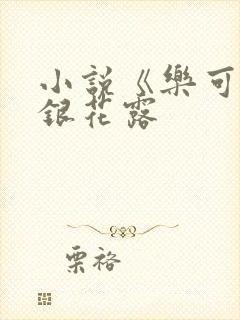 小說《樂可
銀花露
栗裕